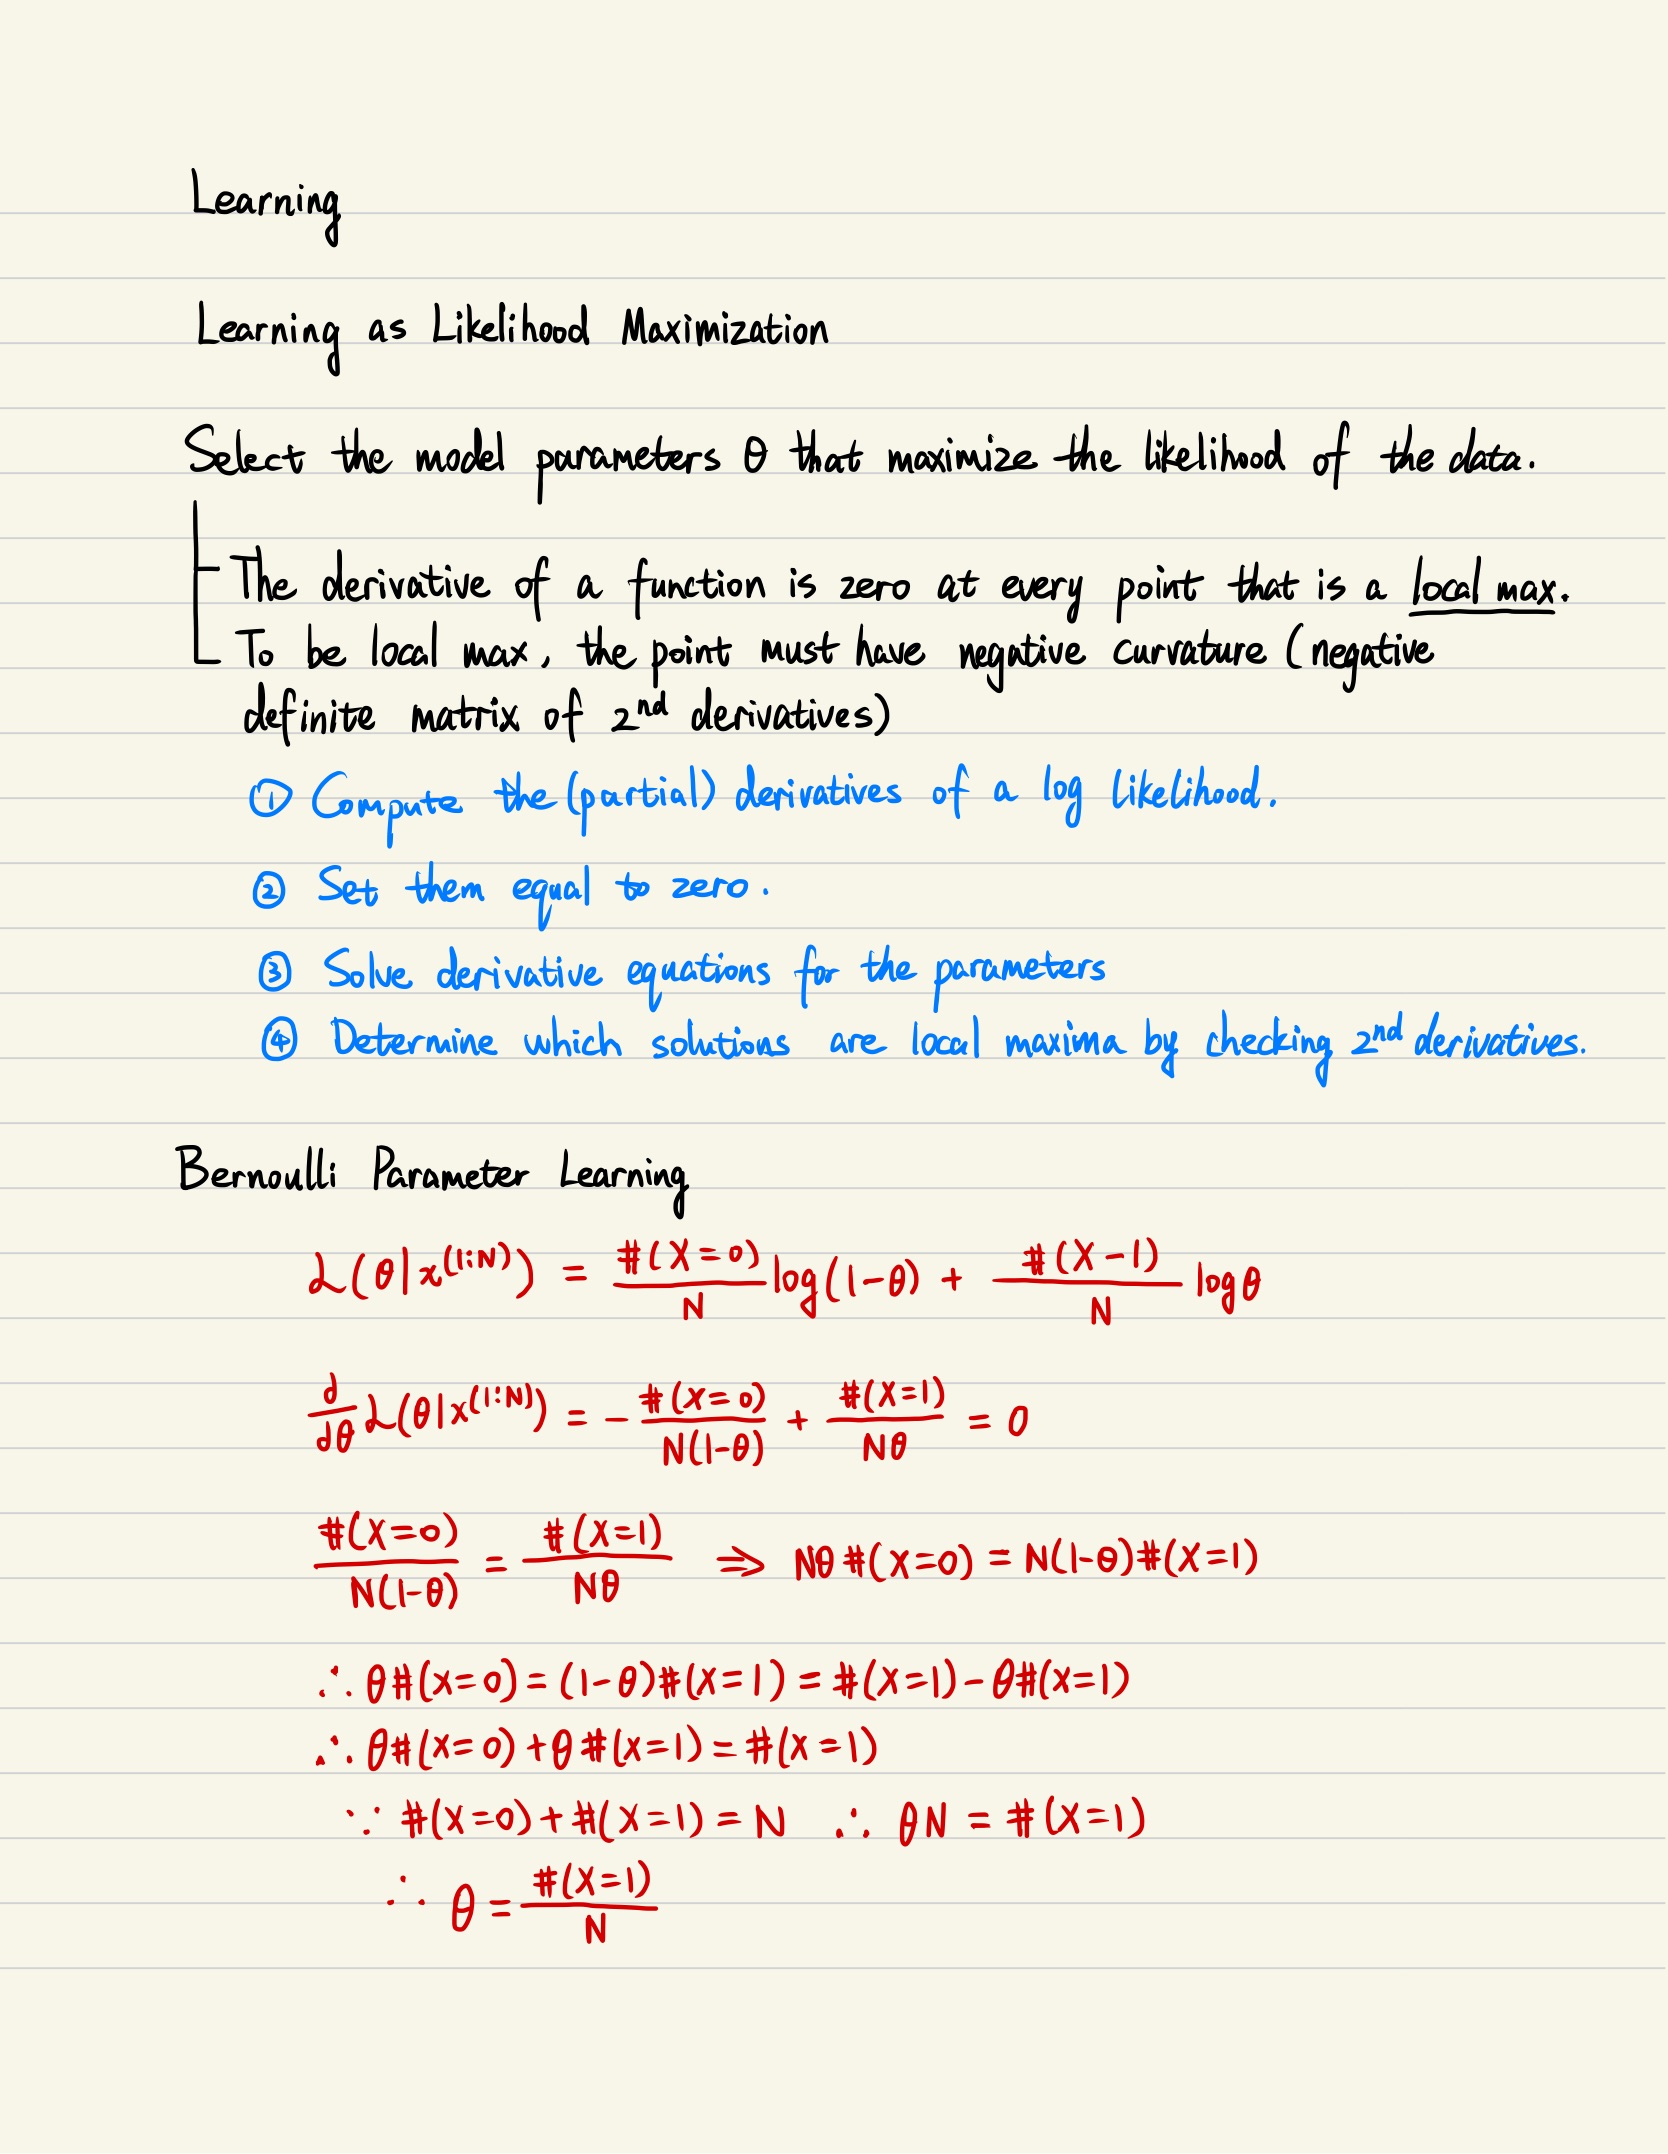 Learning
Learning as Likelihood Maximization
Select the model parameters θ that maximize the likelihood of the data.
The derivative of a function is zero at every point that is a local max.
To be local max, the point must have negative curvature (negative
definite matrix of 2nd derivatives)
① Compute the (partial) derivatives of a log likelihood.
② Set them equal to zero.
③ Solve derivative equations for the parameters
④ Determine which solutions are local maxima by checking 2nd derivatives.
Bernoulli Parameter Learning
ℒ(θ|x^(1:N)) = #(X=0)/N log(1-θ) + #(X-1)/N logθ
d/dθ ℒ(θ|x^(1:N)) = - #(X=0)/N(1-θ) + #(X=1)/Nθ = 0
#(X=0)/N(1-θ) = #(X=1)/Nθ ⇒ Nθ#(X=0) = N(1-θ)#(X=1)
∴ θ#(X=0) = (1-θ)#(X=1) = #(X=1) - θ#(X=1)
∴ θ#(X=0) + θ#(X=1) = #(X=1)
∵ #(X=0) + #(X=1) = N ∴ θN = #(X=1)
∴ θ = #(X=1)/N